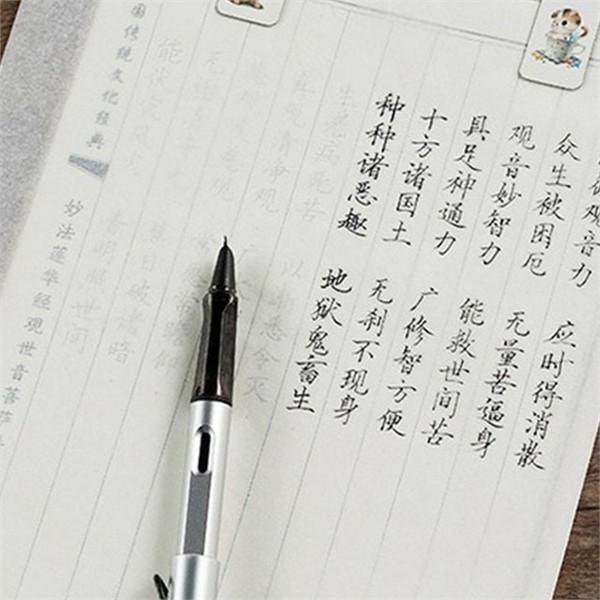 观音力 应时得消散
众生被困厄 无量苦逼身
观音妙智力 能救世间苦
具足神通力 广修智方便
十方诸国土 无刹不现身
种种诸恶趣 地狱鬼畜生
生老病死苦 以 悉令灭
常瞻仰
日破诸暗
能伏灾风火 普明照世间
国传统文化经典
妙法莲华经观世音菩萨